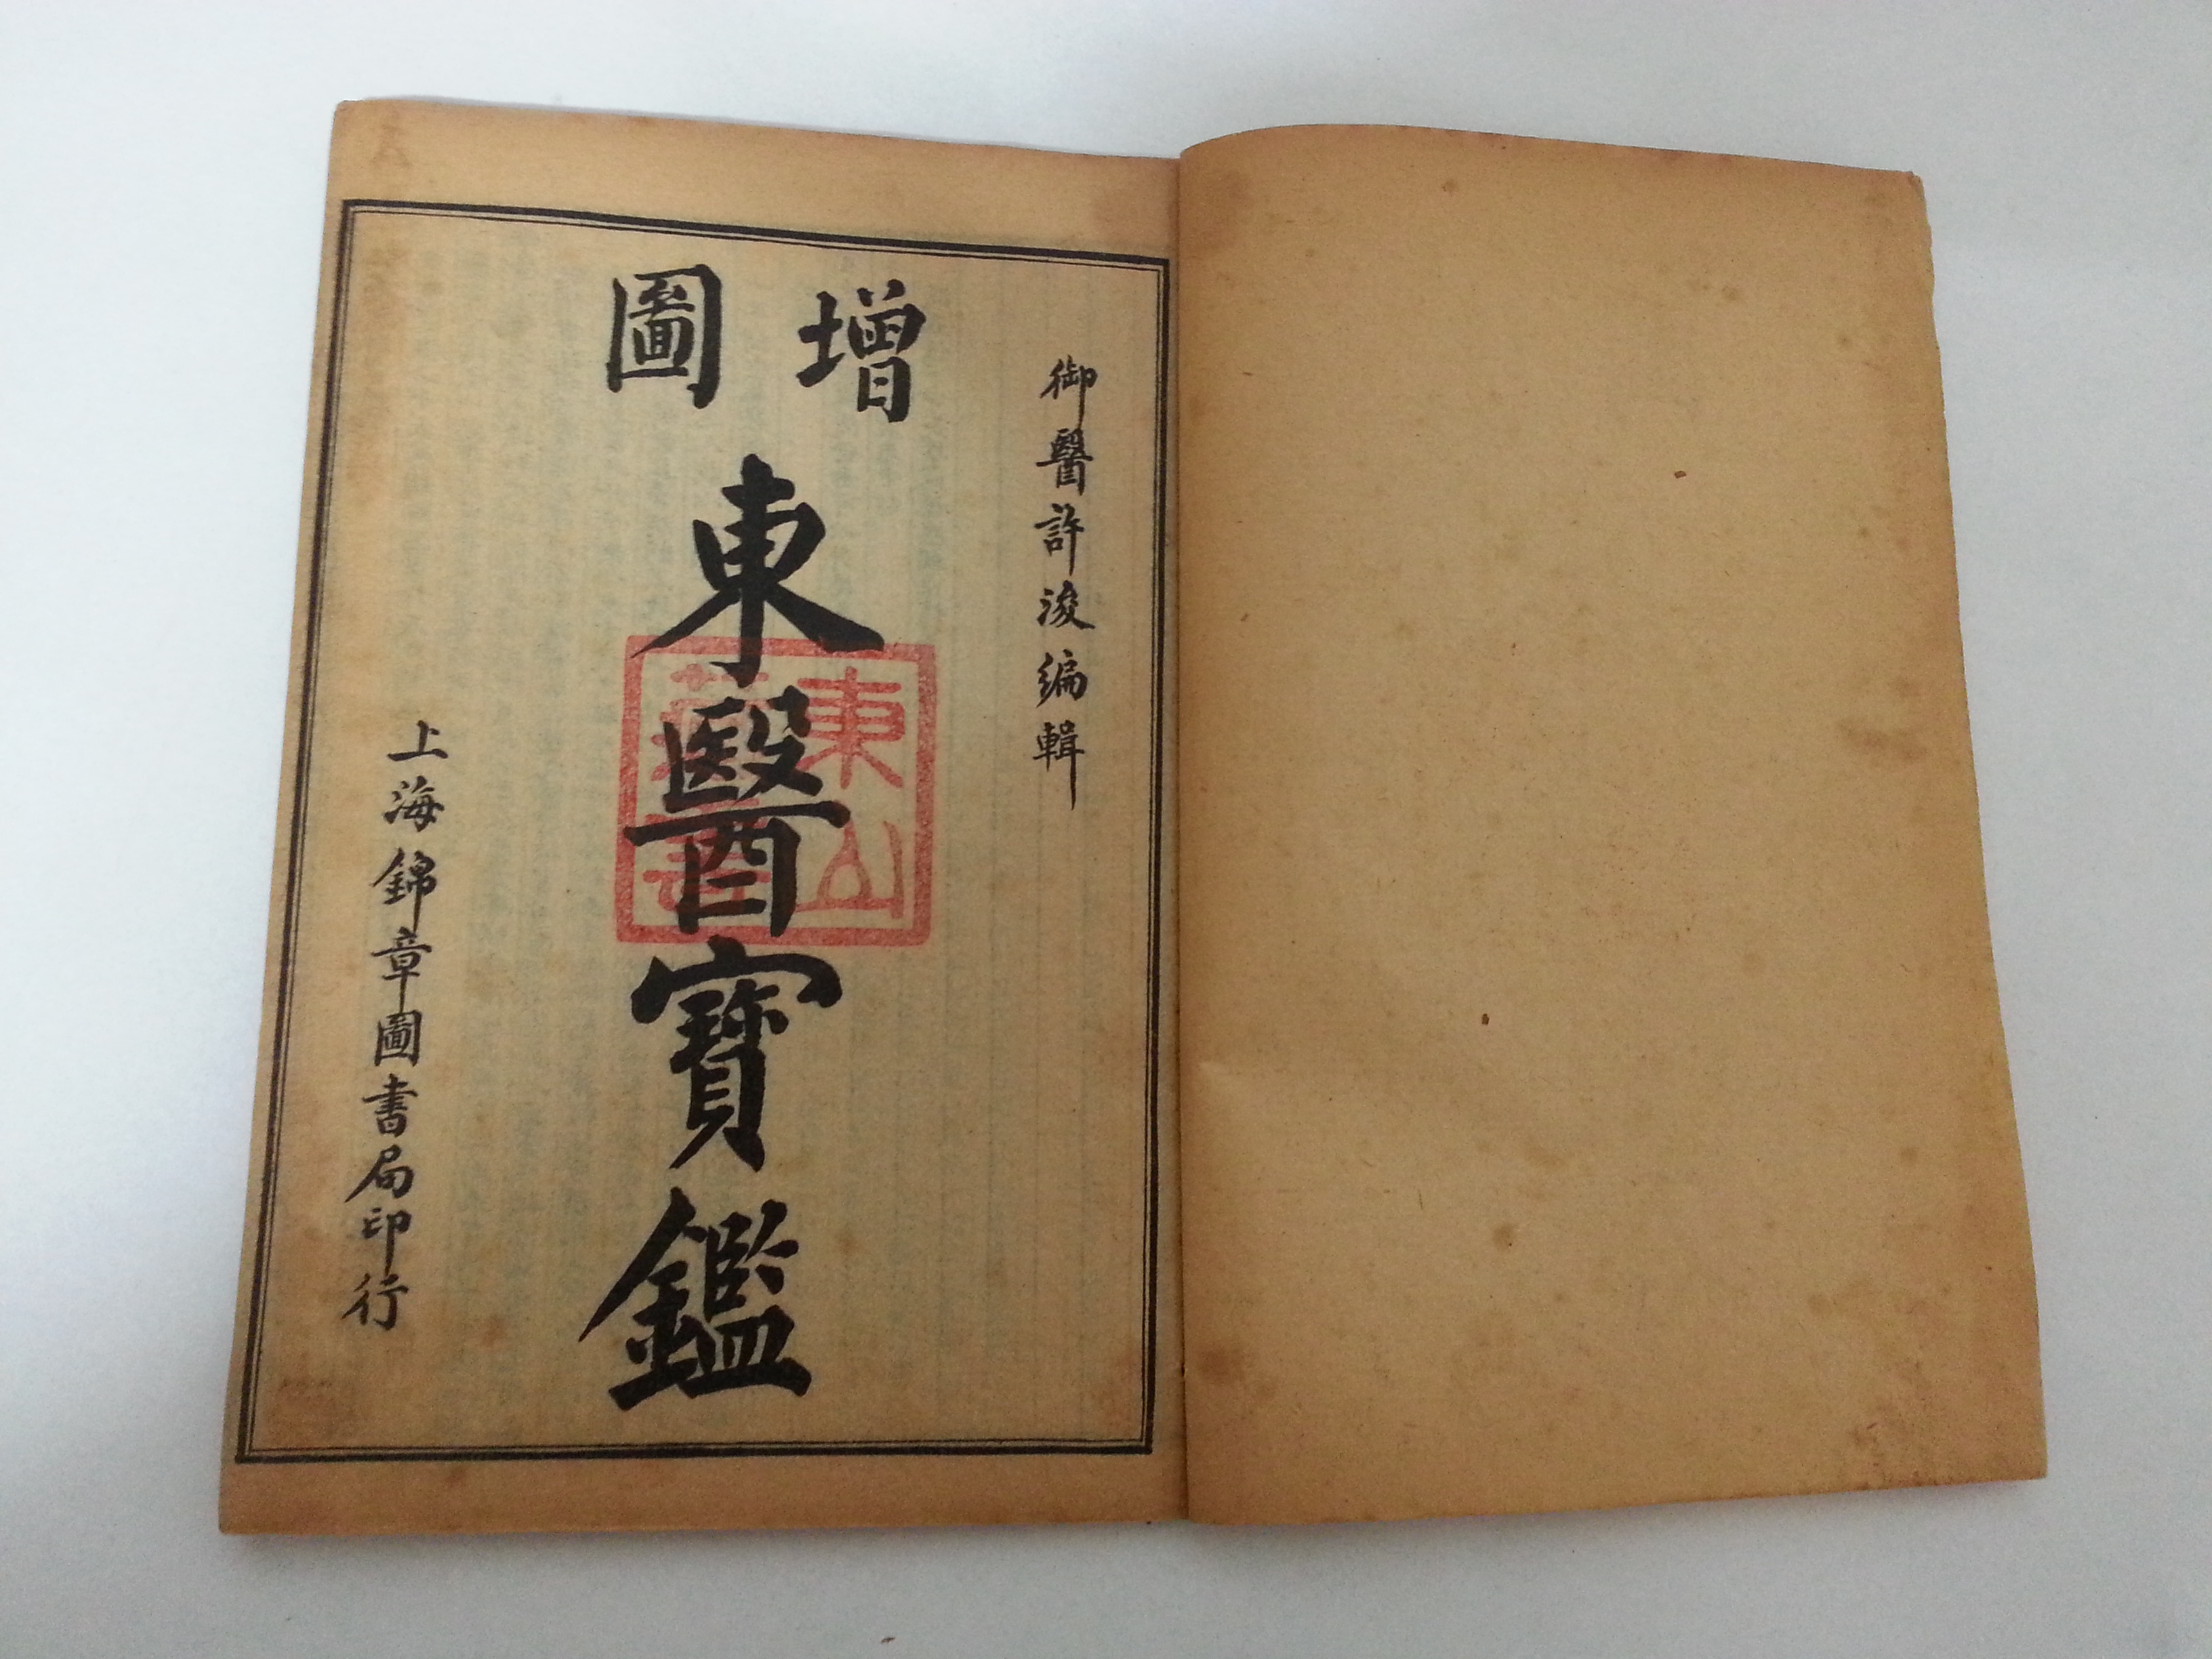 御醫許浚編輯
增圖
東醫寶鑑
東山
上海錦章圖書局印行